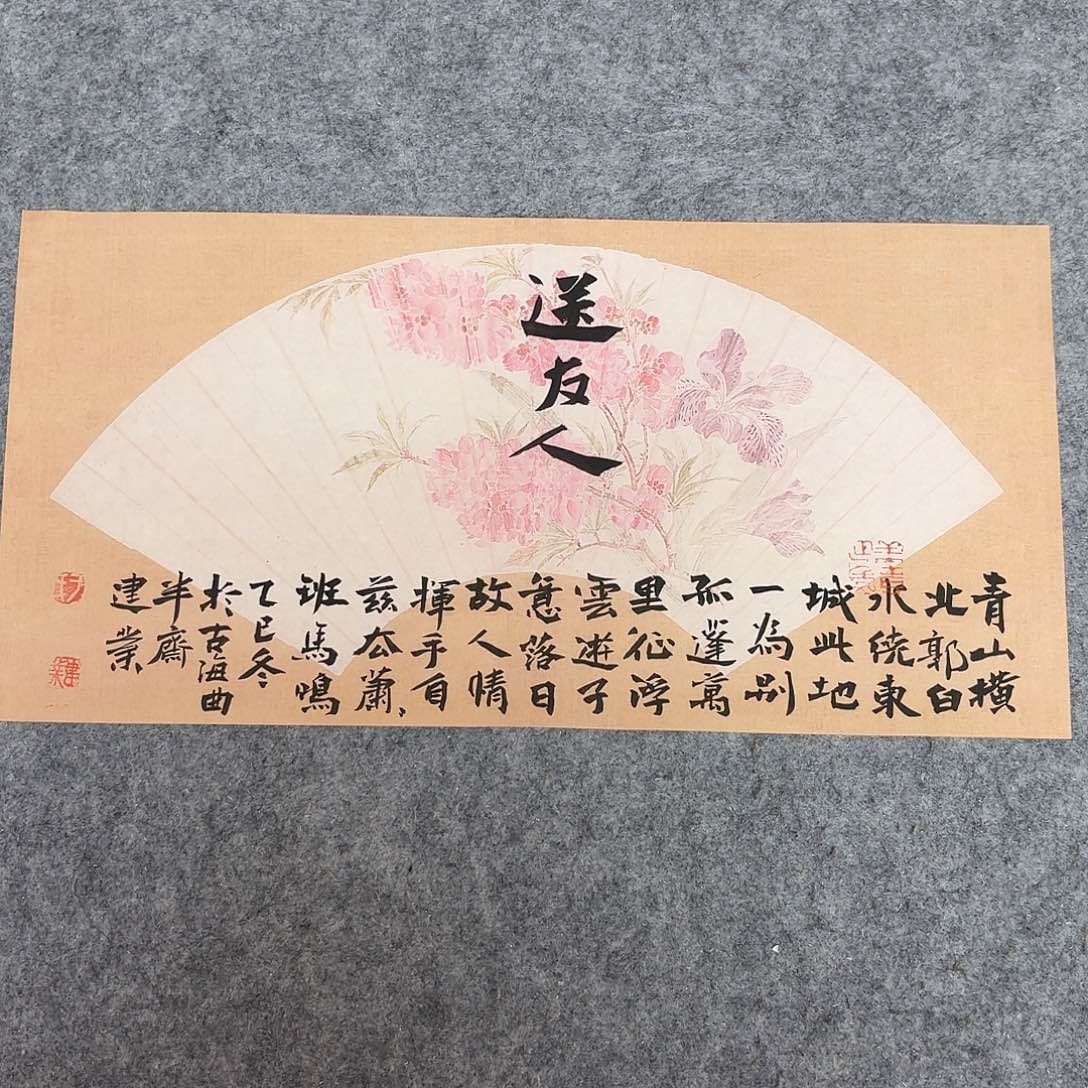 送友人
青山橫
北郭白
水繞東
城此地
一為別
孤蓬萬
里征浮
雲遊子
意落日
故人情
揮手自
茲去蕭〻
班馬鳴
乙巳冬
於古海曲
半齋
建業